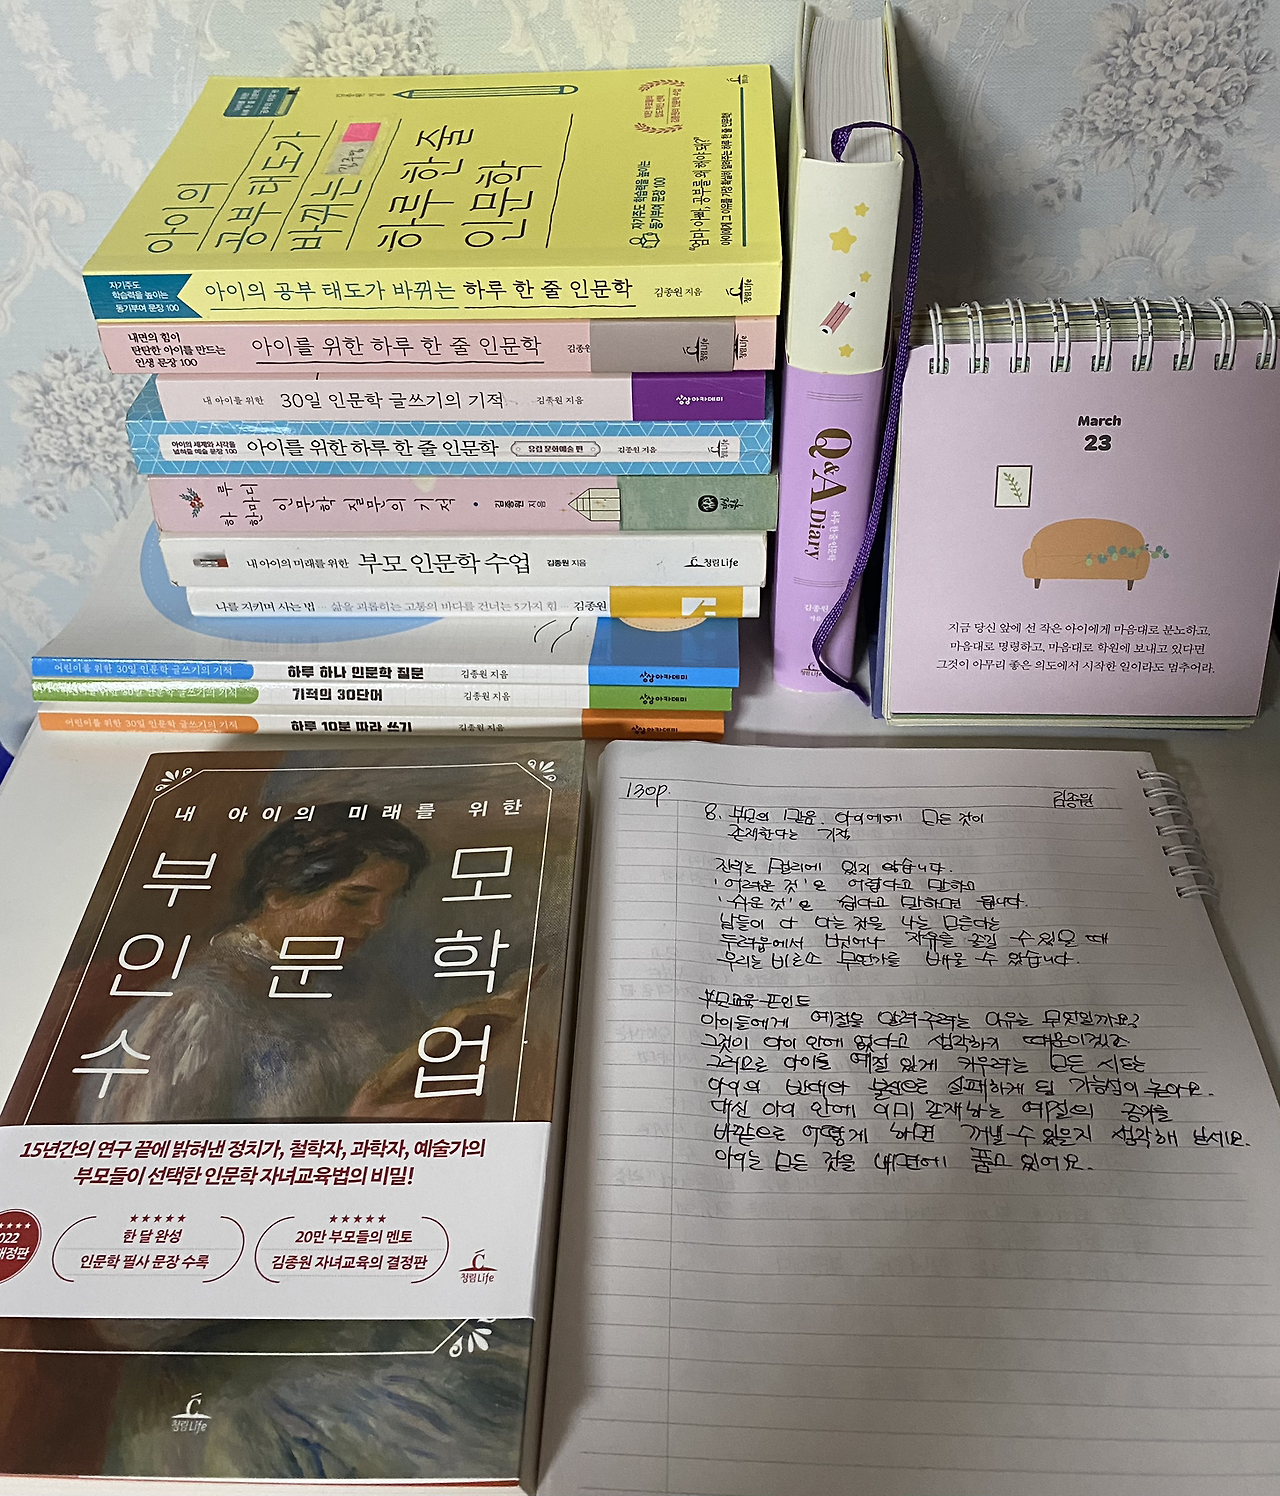 아이의
공부 태도가
바뀌는
하루 한 줄
인문학
자기주도 학습력을 높이는
동기부여 문장 100
"엄마 아빠, 공부를 왜 해야 돼?"
자기주도
학습력을 높이는
동기부여 문장 100
아이의 공부 태도가 바뀌는 하루 한 줄 인문학
김종원 지음
청림Life
내면의 힘이
탄탄한 아이를 만드는
인생 문장 100
아이를 위한 하루 한 줄 인문학
김종원
청림Life
내 아이를 위한
30일 인문학 글쓰기의 기적
김종원 지음
상상아카데미
아이의 세계와 시각을
넓혀줄 예술 문장 100
아이를 위한 하루 한 줄 인문학
유럽 문화예술 편
김종원 지음
청림Life
하루
한마디
인문학 질문의 기적
김종원 지음
내 아이의 미래를 위한
부모 인문학 수업
김종원 지음
청림Life
나를 지키며 사는 법
삶을 괴롭히는 고통의 바다를 건너는 5가지 힘
김종원
어린이를 위한 30일 인문학 글쓰기의 기적
하루 하나 인문학 질문
김종원 지음
상상아카데미
어린이를 위한 30일 인문학 글쓰기의 기적
기적의 30단어
김종원 지음
상상아카데미
어린이를 위한 30일 인문학 글쓰기의 기적
하루 10분 따라 쓰기
김종원 지음
상상아카데미
Q&A Diary
하루 한 줄 인문학
김종원
지음
청림Life
March
23
지금 당신 앞에 선 작은 아이에게 마음대로 분노하고,
마음대로 명령하고, 마음대로 학원에 보내고 있다면
그것이 아무리 좋은 의도에서 시작한 일이라도 멈추어라.
내 아이의 미래를 위한
부모
인문학
수업
15년간의 연구 끝에 밝혀낸 정치가, 철학자, 과학자, 예술가의
부모들이 선택한 인문학 자녀교육법의 비밀!
한 달 완성
인문학 필사 문장 수록
20만 부모들의 멘토
김종원 자녀교육의 결정판
022
개정판
청림Life
청림Life
130p.
김종원
8. 부모의 믿음, 아이에게 모든 것이
존재한다는 기적
진리는 멀리에 있지 않습니다.
'어려운 것'은 어렵다고 말하고
'쉬운 것'은 쉽다고 말하면 됩니다.
남들이 다 아는 것을 나는 모른다는
두려움에서 벗어나 자유를 즐길 수 있을 때
우리는 비로소 무언가를 배울 수 있습니다.
부모교육 포인트
아이들에게 예절을 알려주려는 이유는 무엇일까요?
그것이 아이 안에 없다고 생각하기 때문이겠죠
그러므로 아이를 예절 있게 키우려는 모든 시도는
아이의 반대와 불신으로 실패하게 될 가능성이 높아요.
대신 아이 안에 이미 존재하는 예절의 증거를
바깥으로 어떻게 하면 꺼낼 수 있을지 생각해 보세요.
아이는 모든 것을 내면에 품고 있어요.